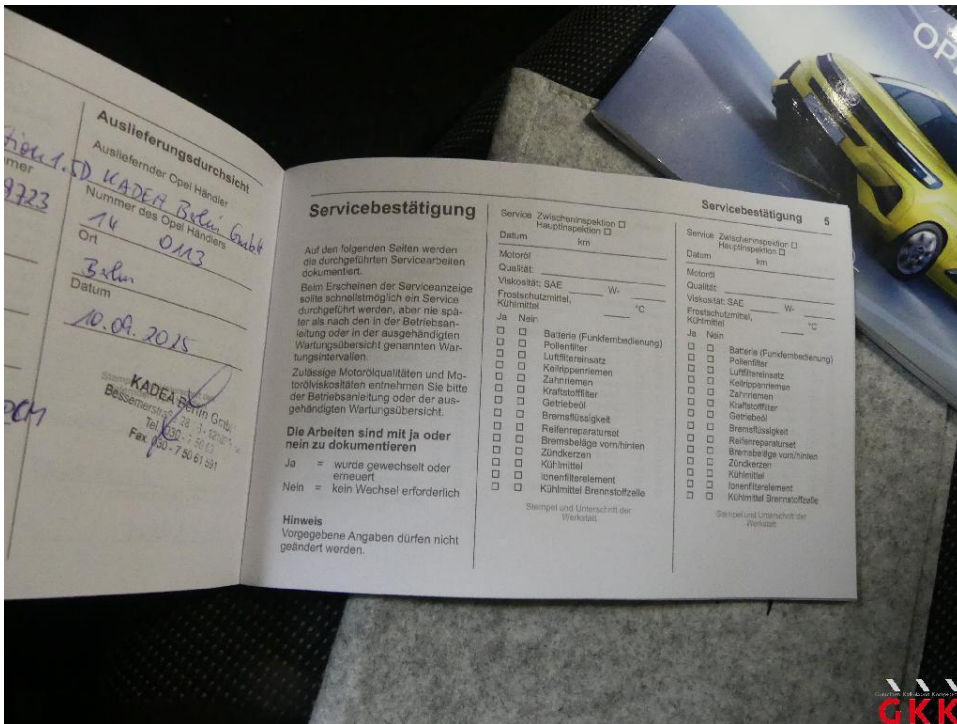 Auslieferungsdurchsicht
Ausliefernder Opel Händler
KADEA Berlin GmbH
Nummer des Opel Händlers
14 0113
Ort
Berlin
Datum
10.09.2025
KADEA Berlin GmbH
Tel. 030 -
Fax 030 - 7 50 61 591
9723
Servicebestätigung
Auf den folgenden Seiten werden
die durchgeführten Servicearbeiten
dokumentiert.
Beim Erscheinen der Serviceanzeige
sollte schnellstmöglich ein Service
durchgeführt werden, aber nie spä-
ter als nach den in der Betriebsan-
leitung oder in der ausgehändigten
Wartungsübersicht genannten War-
tungsintervallen.
Zulässige Motorölqualitäten und Mo-
torölviskositäten entnehmen Sie bitte
der Betriebsanleitung oder der aus-
gehändigten Wartungsübersicht.
Die Arbeiten sind mit ja oder
nein zu dokumentieren
Ja = wurde gewechselt oder
erneuert
Nein = kein Wechsel erforderlich
Hinweis
Vorgegebene Angaben dürfen nicht
geändert werden.
Service Zwischeninspektion
Hauptinspektion
Datum km
Motoröl
Qualität:
Viskosität: SAE W-
Frostschutzmittel,
Kühlmittel °C
Ja Nein
Batterie (Funkfernbedienung)
Pollenfilter
Luftfiltereinsatz
Keilrippenriemen
Zahnriemen
Kraftstofffilter
Getriebeöl
Bremsflüssigkeit
Reifenreparaturset
Bremsbeläge vorn/hinten
Zündkerzen
Kühlmittel
Ionenfilterelement
Kühlmittel Brennstoffzelle
Stempel und Unterschrift der
Werkstatt
Servicebestätigung 5
Service Zwischeninspektion
Hauptinspektion
Datum km
Motoröl
Qualität:
Viskosität: SAE W-
Frostschutzmittel,
Kühlmittel °C
Ja Nein
Batterie (Funkfernbedienung)
Pollenfilter
Luftfiltereinsatz
Keilrippenriemen
Zahnriemen
Kraftstofffilter
Getriebeöl
Bremsflüssigkeit
Reifenreparaturset
Bremsbeläge vorn/hinten
Zündkerzen
Kühlmittel
Ionenfilterelement
Kühlmittel Brennstoffzelle
Stempel und Unterschrift der
Werkstatt
GKK